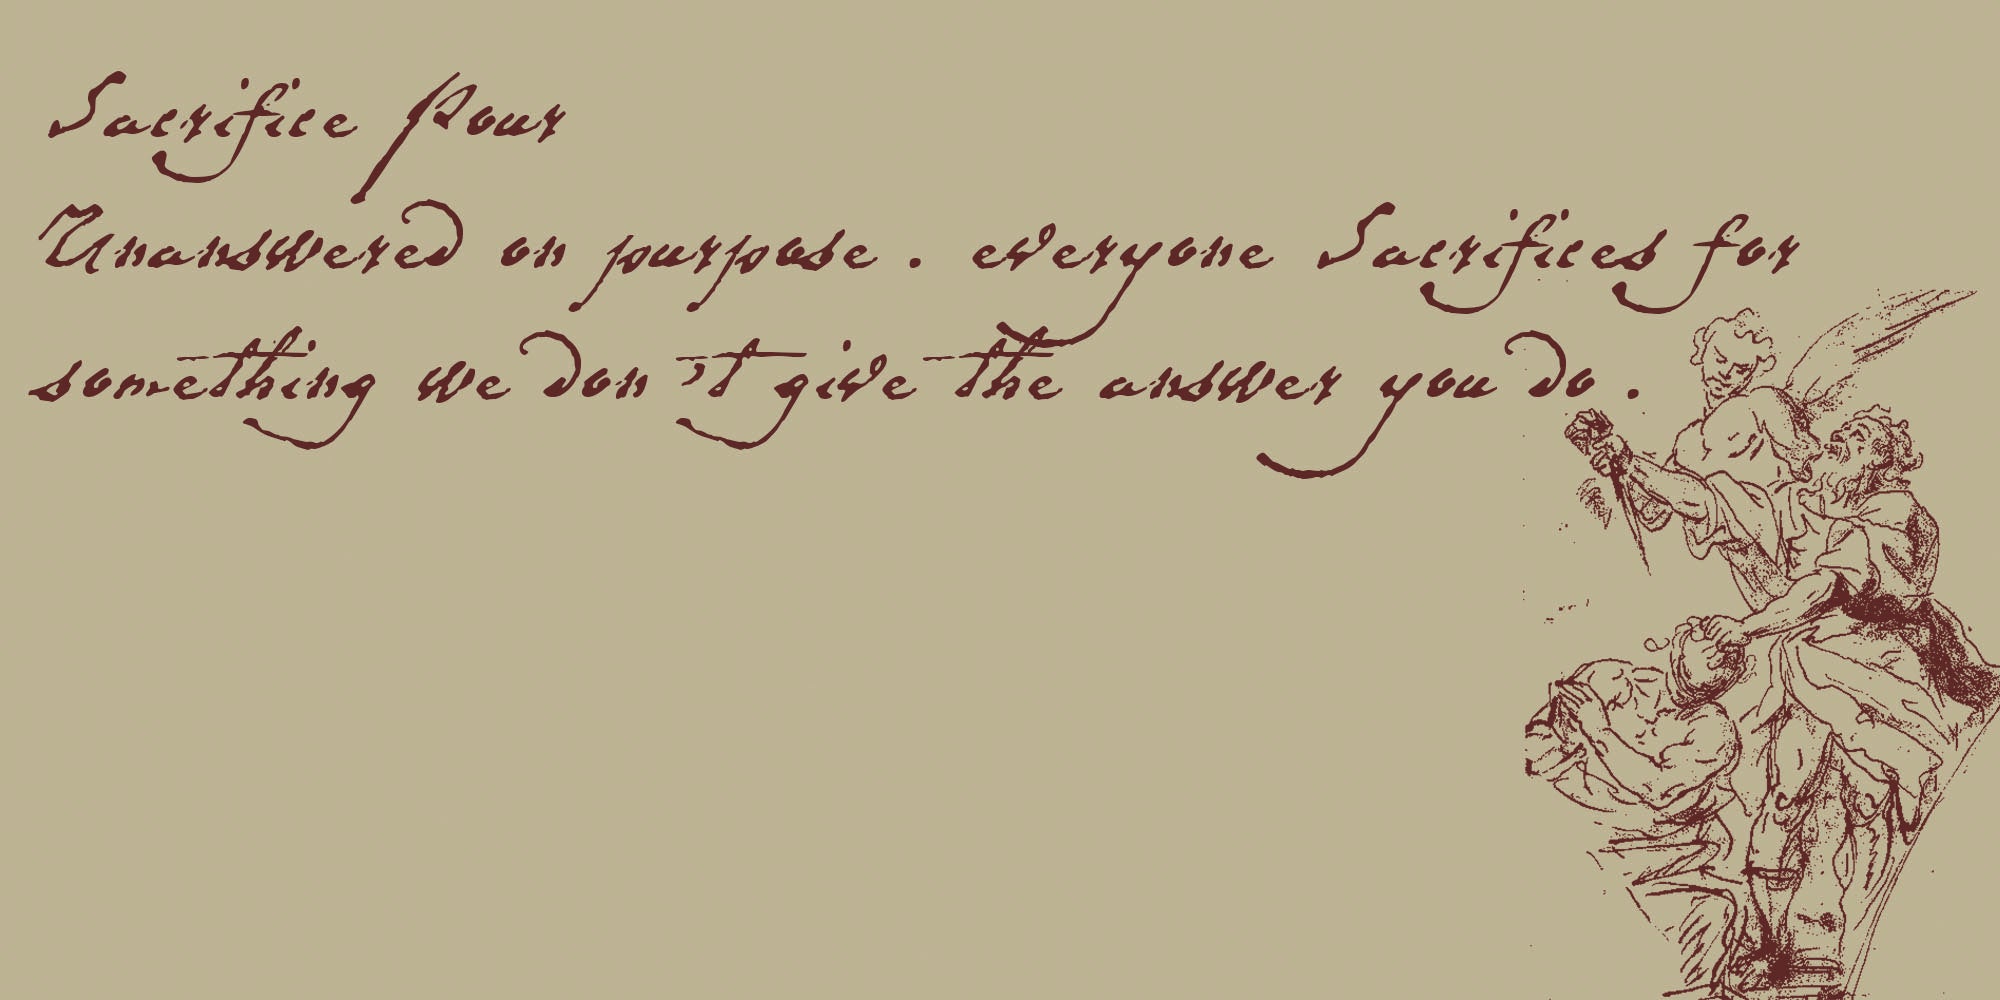 Sacrifice Pour
Unanswered on purpose. everyone Sacrifices for
something we don't give the answer you do.